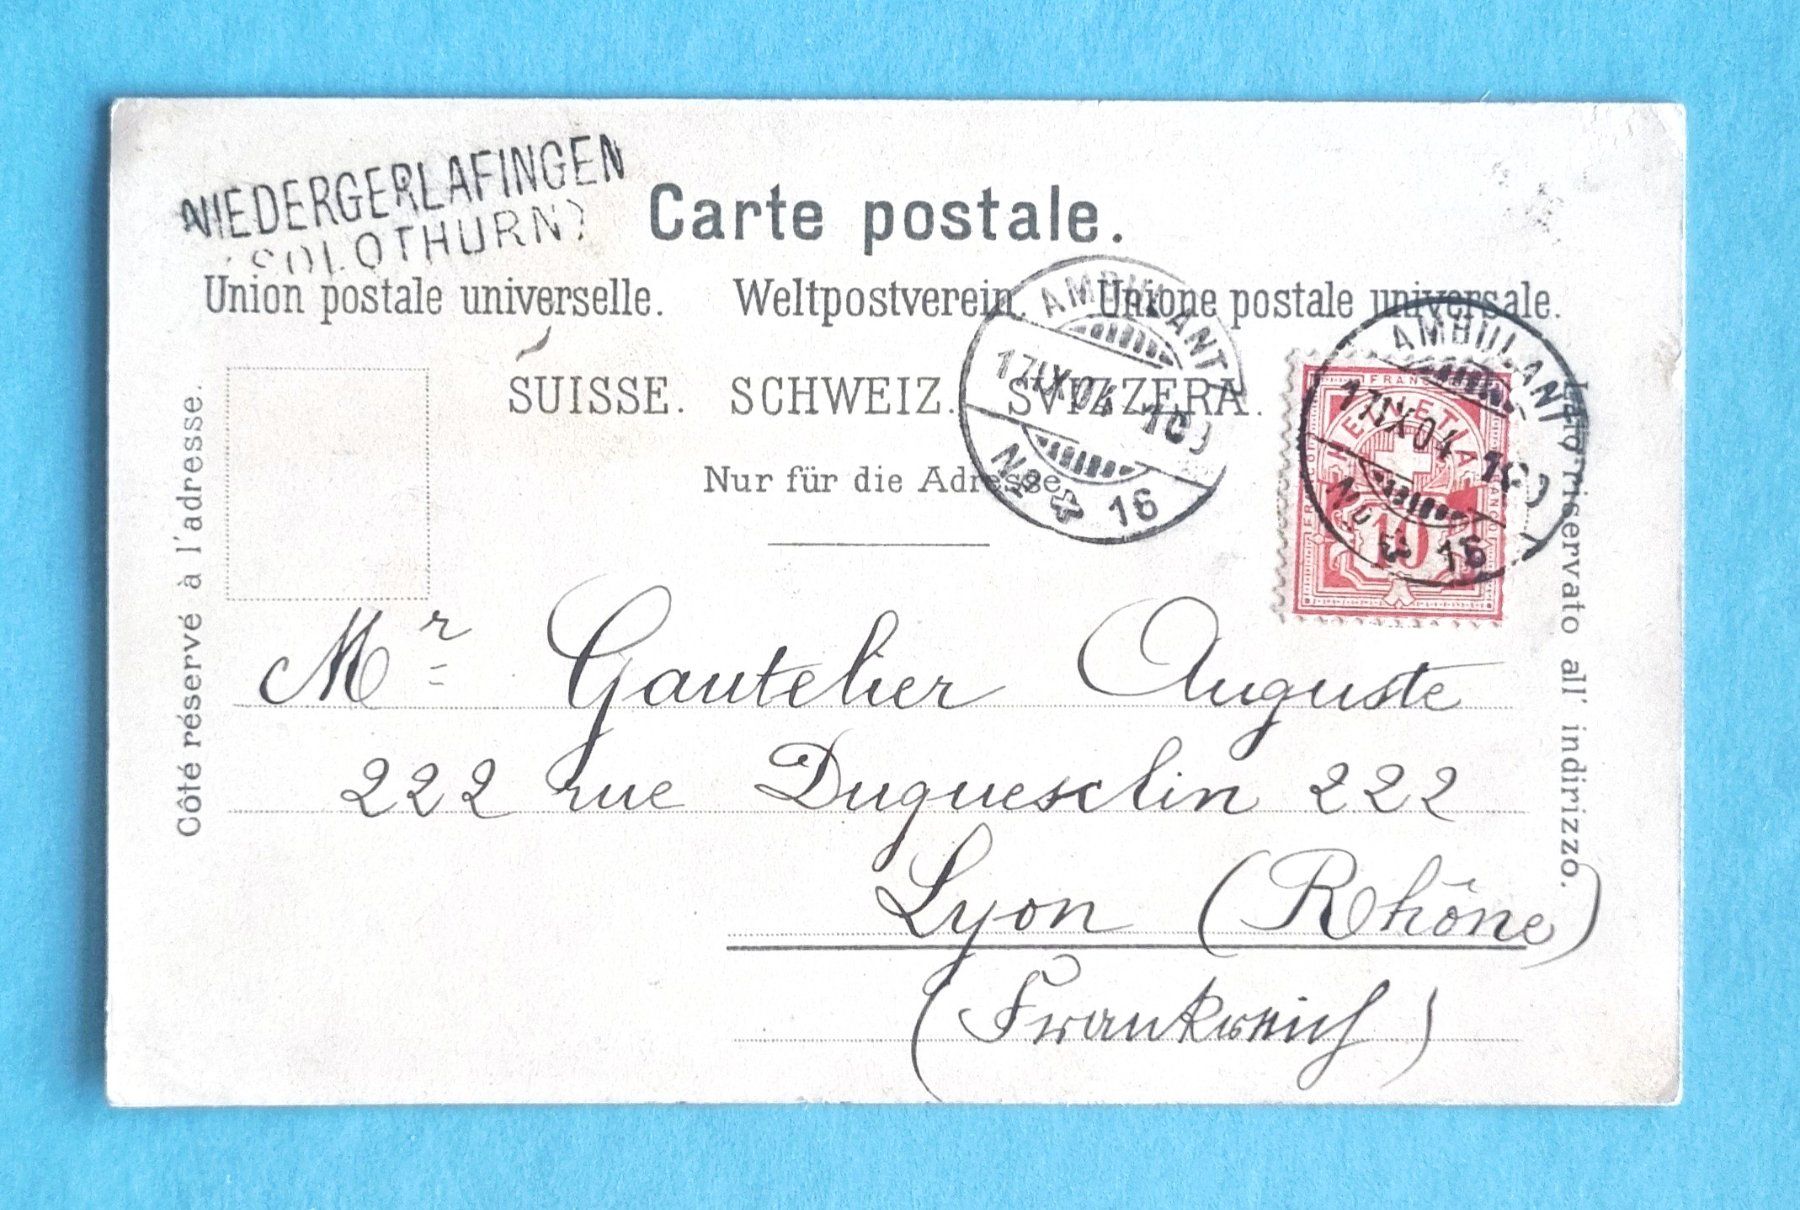 NIEDERGERLAFINGEN
(SOLOTHURN)
Carte postale.
Union postale universelle. Weltpostverein. Unione postale universale.
SUISSE. SCHWEIZ. SVIZZERA.
Nur für die Adresse.
Côté réservé à l'adresse.
Lato riservato all' indirizzo.
AMBULANT
17.IX.04
No 16
AMBULANT
17.IX.04
No 16
FRANCO
HELVETIA
FRANCO
10
Mr Gautelier Auguste
222 rue Duguesclin 222
Lyon (Rhône)
(Frankreich)